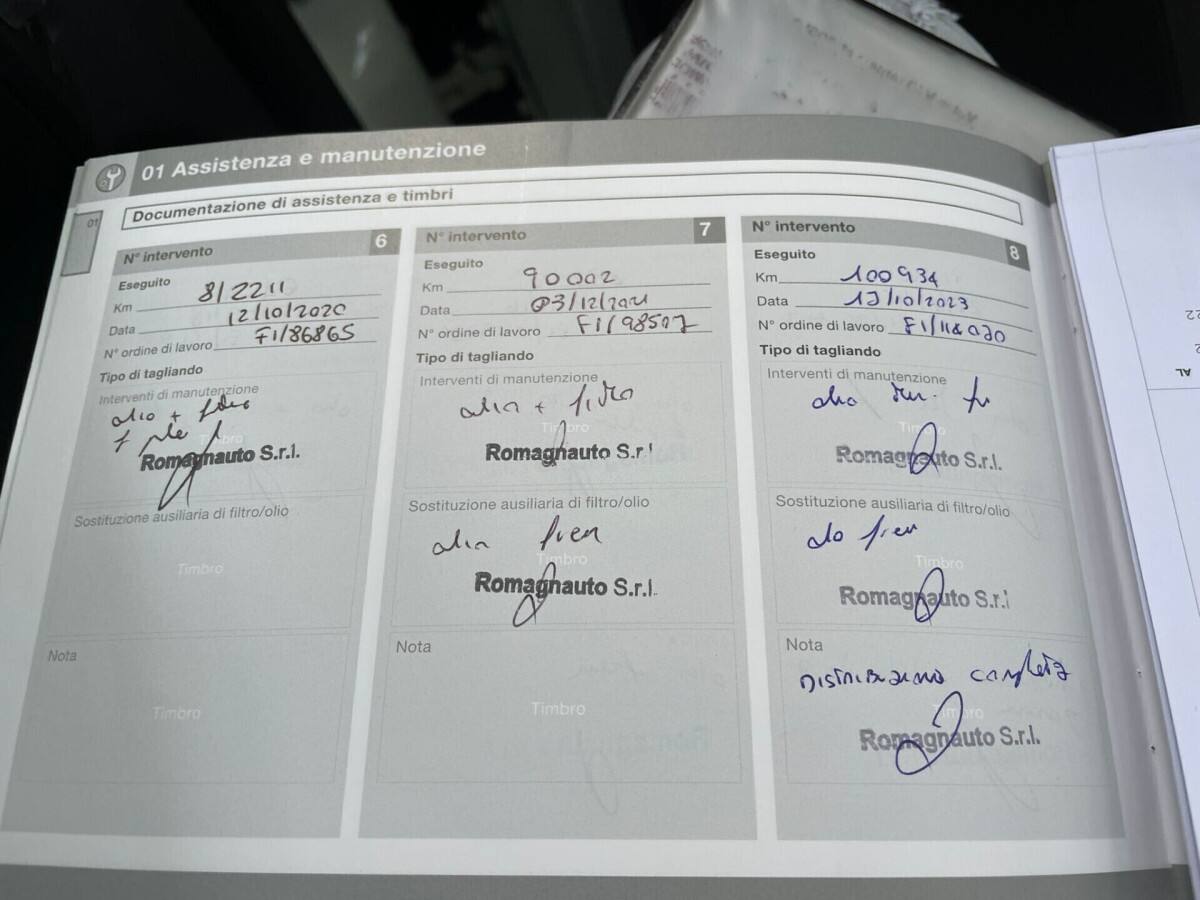 01 Assistenza e manutenzione
01
Documentazione di assistenza e timbri
N° intervento 6
Eseguito
Km 8/2211
Data 12/10/2020
N° ordine di lavoro F1/86865
Tipo di tagliando
Interventi di manutenzione
olio + filtro
Timbro
Romagnauto S.r.l.
Sostituzione ausiliaria di filtro/olio
Timbro
Nota
Timbro
N° intervento 7
Eseguito
Km 90002
Data 03/12/2021
N° ordine di lavoro F1/98507
Tipo di tagliando
Interventi di manutenzione
olio + filtro
Timbro
Romagnauto S.r.l
Sostituzione ausiliaria di filtro/olio
olio freni
Timbro
Romagnauto S.r.l.
Nota
Timbro
N° intervento 8
Eseguito
Km 100934
Data /10/2023
N° ordine di lavoro F1/118070
Tipo di tagliando
Interventi di manutenzione
olio
Timbro
Romagnauto S.r.l.
Sostituzione ausiliaria di filtro/olio
olio freni
Timbro
Romagnauto S.r.l
Nota
DISTRIBUZIONE completa
Timbro
Romagnauto S.r.l.
22
2
AL